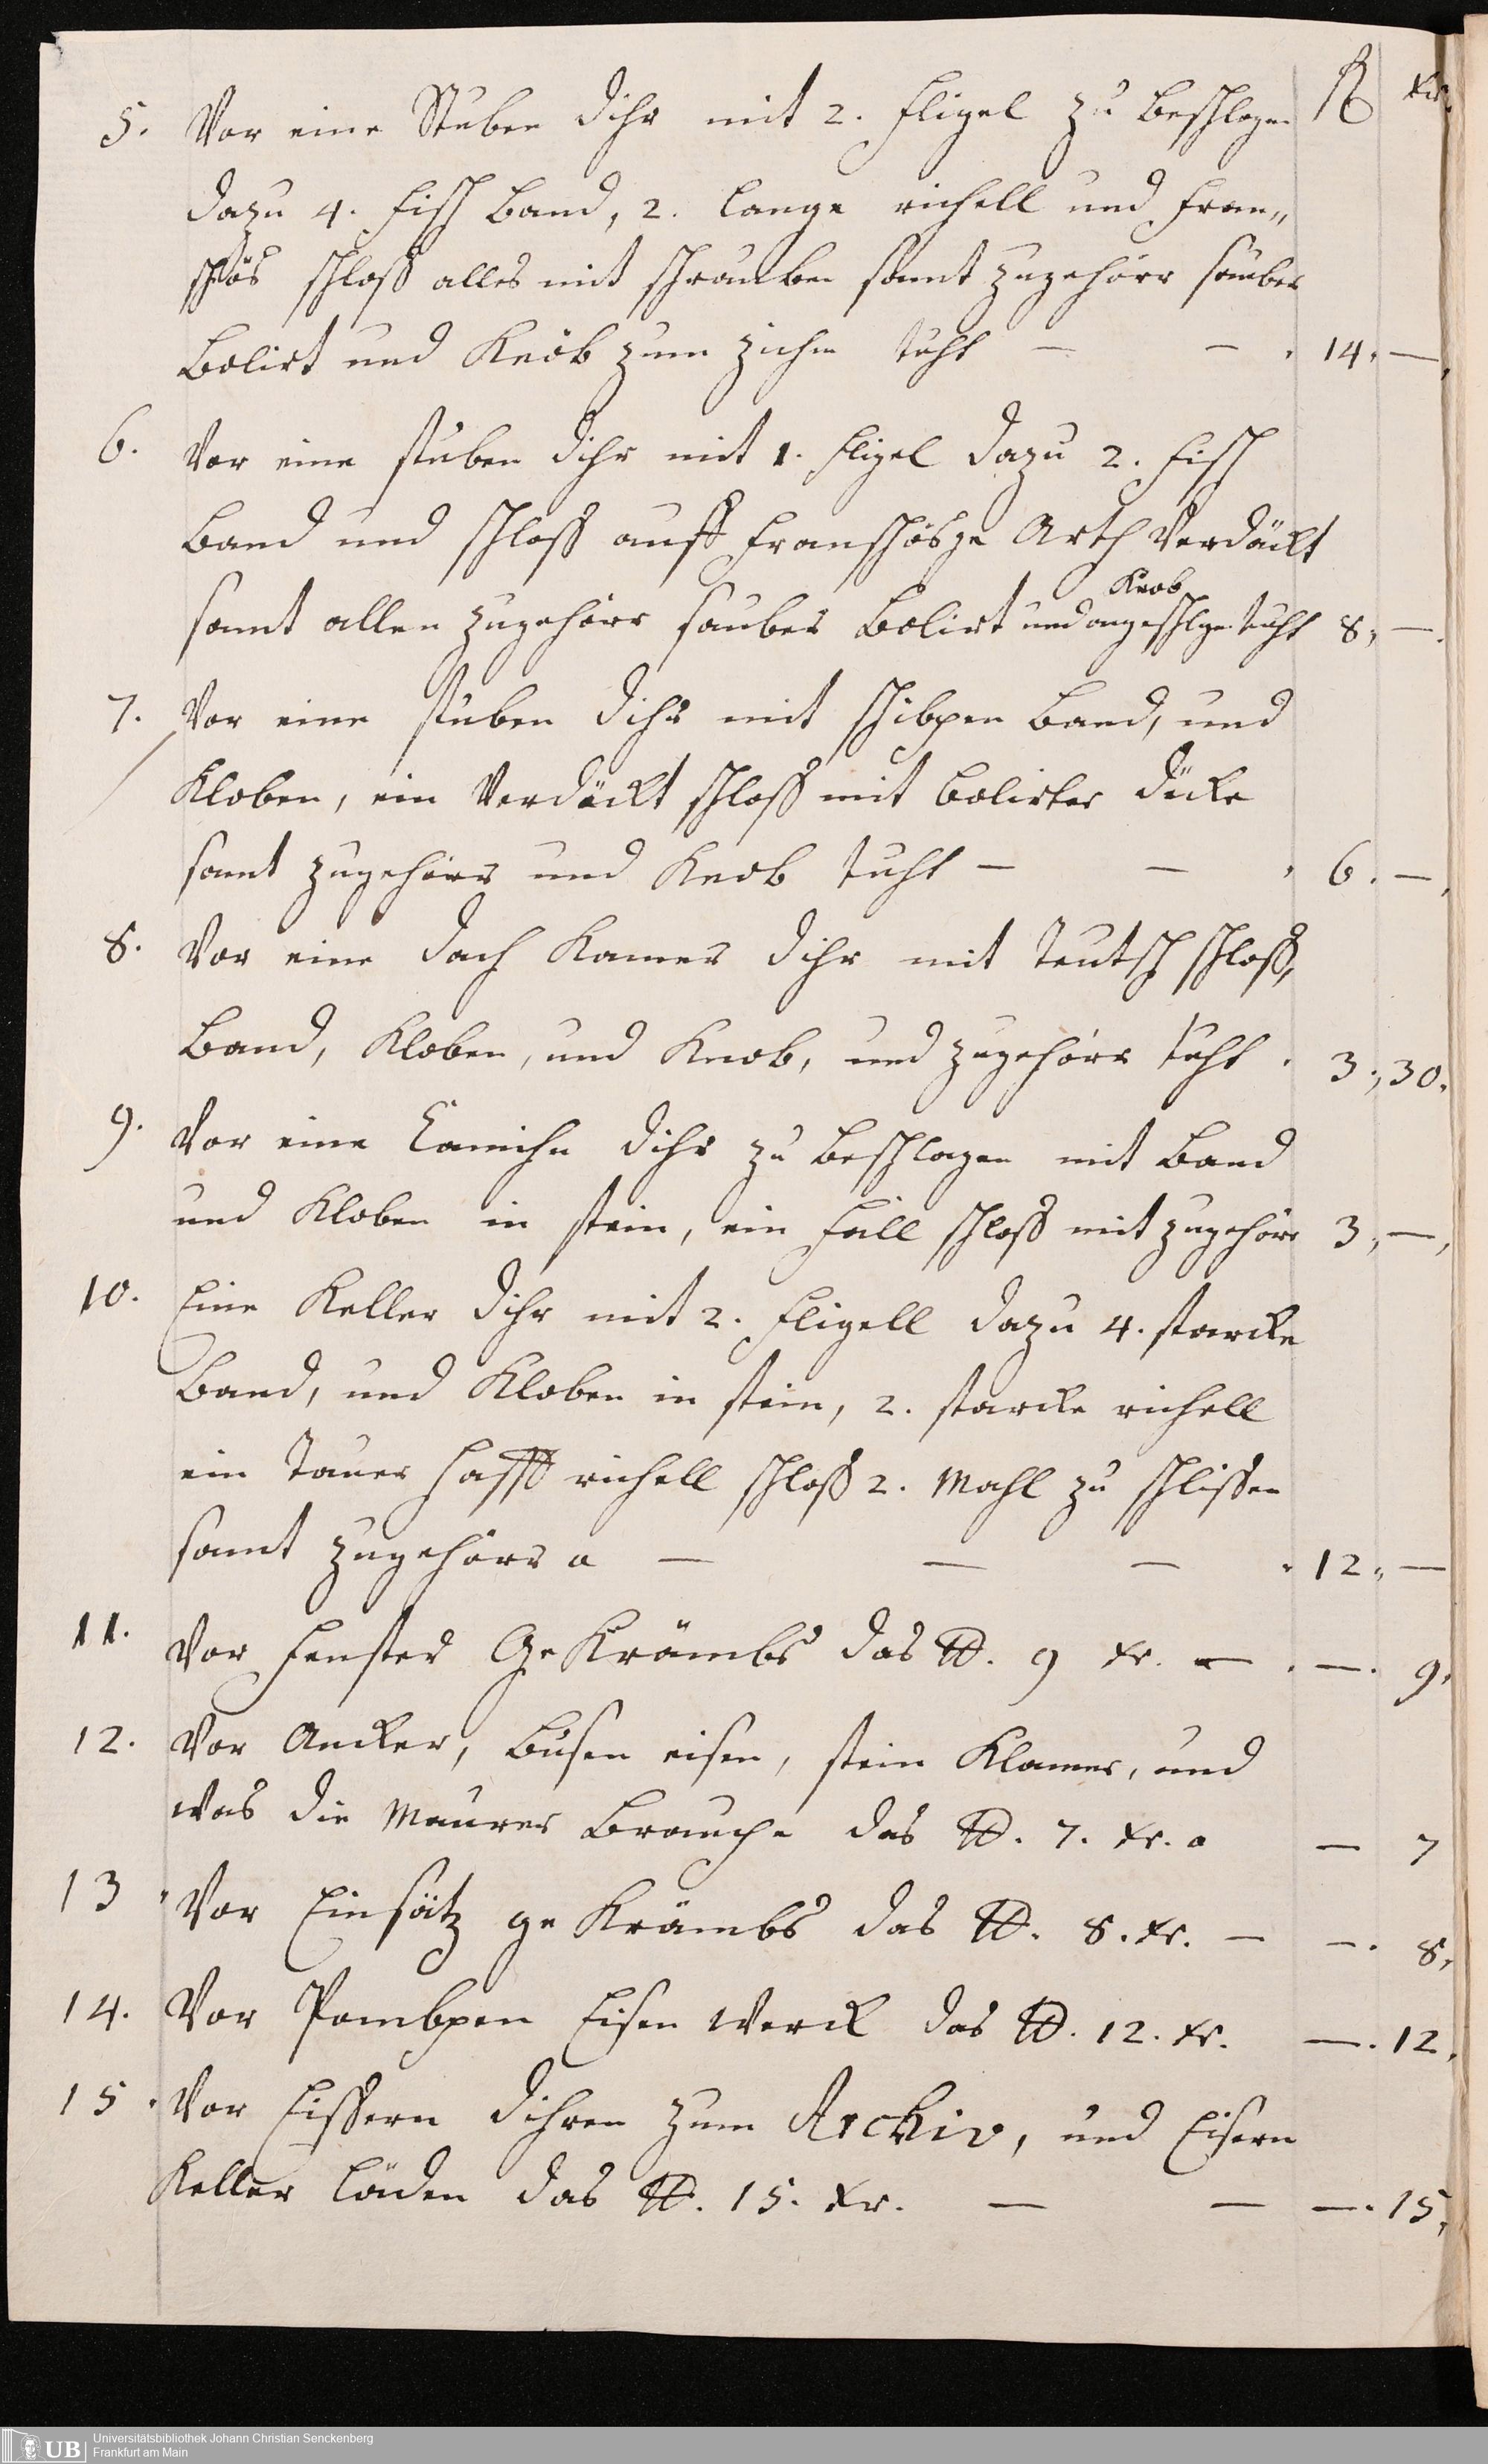 fl Xr.
5. Vor eine Stuben dihr mit 2. fligel zu beschlagen
dazu 4. fisch band, 2. lange richell und fran„
shös schloß alles mit schrauben samt zugehörr sauber
bolirt und Knöb zum zichen tuht — — . 14. —.
6. Vor eine stuben dihr mit 1. fligel dazu 2. fisch
band und schloß auff franshösge Arth Verdäckt
Knob
samt allen zugehörr sauber bolirt und angeschlgen tuht 8, —.
7. Vor eine stuben dihr mit schibpen band, und
Kloben, ein Verdäckt schloß mit bolirter dicke
samt zugehörr und Knob tuht — — . 6. —,
8. Vor eine dach Kamer dihr mit teutsch schloß,
band, Kloben, und Knob, und zugehörr tuht . 3., 30.
9. Vor eine Camihn dihr zu beschlagen mit band
und Kloben in stein, ein fall schloß mit zugehörr 3, —,
10. Eine Keller dihr mit 2. fligell dazu 4. starcke
band, und Kloben in stein, 2. starcke richell
ein tauer hafft richell schloß 2. Mahl zu schlissen
samt zugehörr a — — — . 12. —
11. Vor fenster Gekrämbs das ℔. 9 Xr. — . —. 9.
12. Vor Ancker, busen eisen, stein Klamer, und
was die Maurer brauche das ℔. 7. Xr. a — 7
13 Vor Einsätz gekrämbs das ℔. 8. Xr. — —. 8,
14. Vor Pombpen Eisen werck das ℔. 12. Xr. —. 12.
15. Vor Eissern dihren zum Archiv, und Eisern
Keller läden das ℔. 15. Xr. — — —. 15,
UB
Universitätsbibliothek Johann Christian Senckenberg
Frankfurt am Main